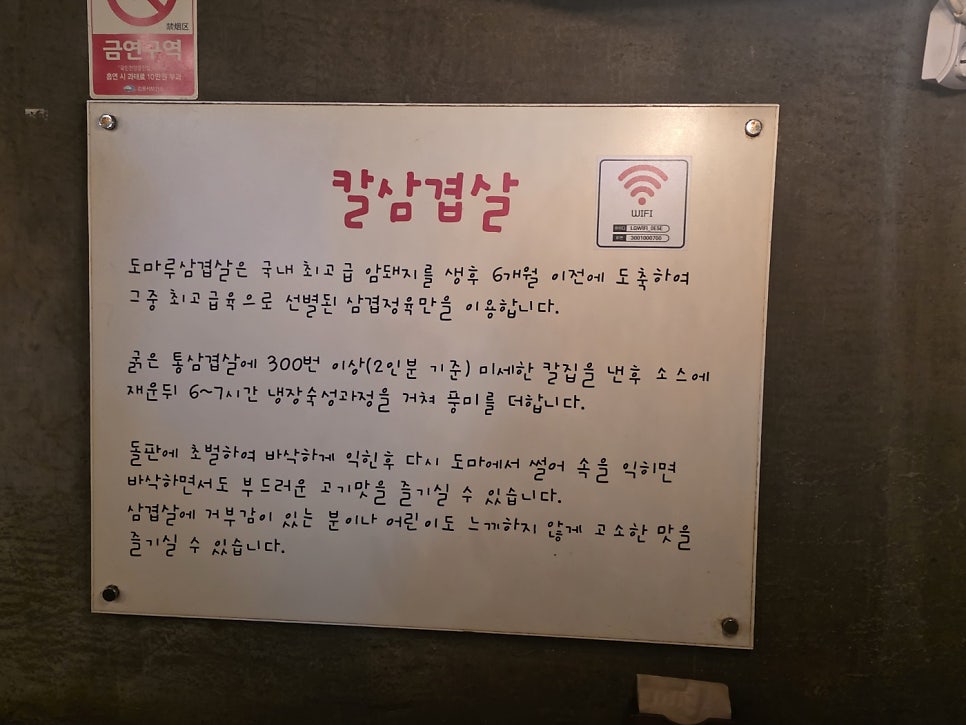 禁烟区
금연구역
흡연 시 과태료 10만원 부과
칼삼겹살
WIFI
도마루삼겹살은 국내 최고급 암돼지를 생후 6개월 이전에 도축하여
그중 최고급육으로 선별된 삼겹정육만을 이용합니다.
굵은 통삼겹살에 300번 이상(2인분 기준) 미세한 칼집을 낸후 소스에
재운뒤 6~7시간 냉장숙성과정을 거쳐 풍미를 더합니다.
돌판에 초벌하여 바삭하게 익힌후 다시 도마에서 썰어 속을 익히면
바삭하면서도 부드러운 고기맛을 즐기실 수 있습니다.
삼겹살에 거부감이 있는 분이나 어린이도 느끼하지 않게 고소한 맛을
즐기실 수 있습니다.